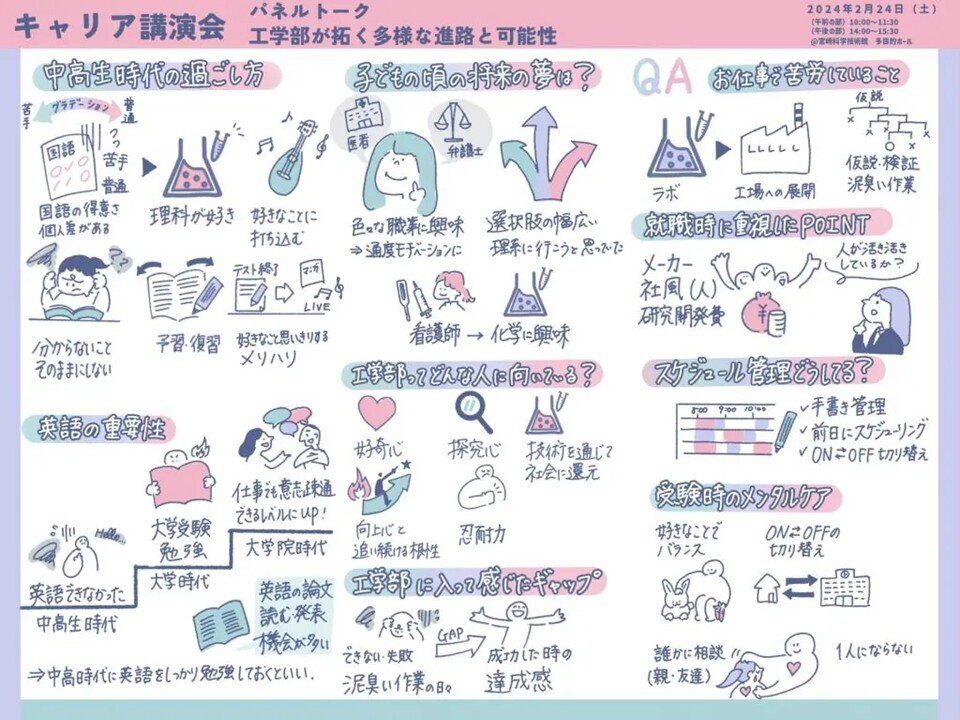 キャリア講演会
パネルトーク
工学部が拓く多様な進路と可能性
2024年2月24日（土）
(午前の部) 10:00〜11:30
(午後の部) 14:00〜15:30
@宮崎科学技術館 多目的ホール
中高生時代の過ごし方
苦手
グラデーション
普通
国語
苦手
普通
国語の得意さ
個人差がある
理科が好き
好きなことに
打ち込む
分からないこと
そのままにしない
予習・復習
テスト終了
マンガ
LIVE
好きなこと思いきりする
メリハリ
英語の重要性
Hello...
英語できなかった
中高生時代
大学受験
勉強
大学時代
仕事でも意志疎通
できるレベルにUP!
大学院時代
英語の論文
読む・発表
機会が多い
⇒中高時代に英語をしっかり勉強しておくといい.
子どもの頃の将来の夢は?
医者
弁護士
色々な職業に興味
⇒適度モチベーションに
選択肢の幅広い
理系に行こうと思ってた
看護師 → 化学に興味
工学部ってどんな人に向いている?
好奇心
探究心
技術を通じて
社会に還元
向上心と
追い続ける根性
忍耐力
工学部に入って感じたギャップ
できない・失敗
泥臭い作業の日々
GAP
成功した時の
達成感
QA
お仕事で苦労していること
ラボ
工場への展開
仮説
仮説・検証
泥臭い作業
就職時に重視したPOINT
メーカー
社風(人)
研究開発費
¥
人が活き活き
しているか?
スケジュール管理どうしてる?
8:00 9:00 10:00
✓手書き管理
✓前日にスケジューリング
✓ON⇄OFF切り替え
受験時のメンタルケア
好きなことで
バランス
ON⇄OFFの
切り替え
誰かに相談
(親・友達)
1人にならない